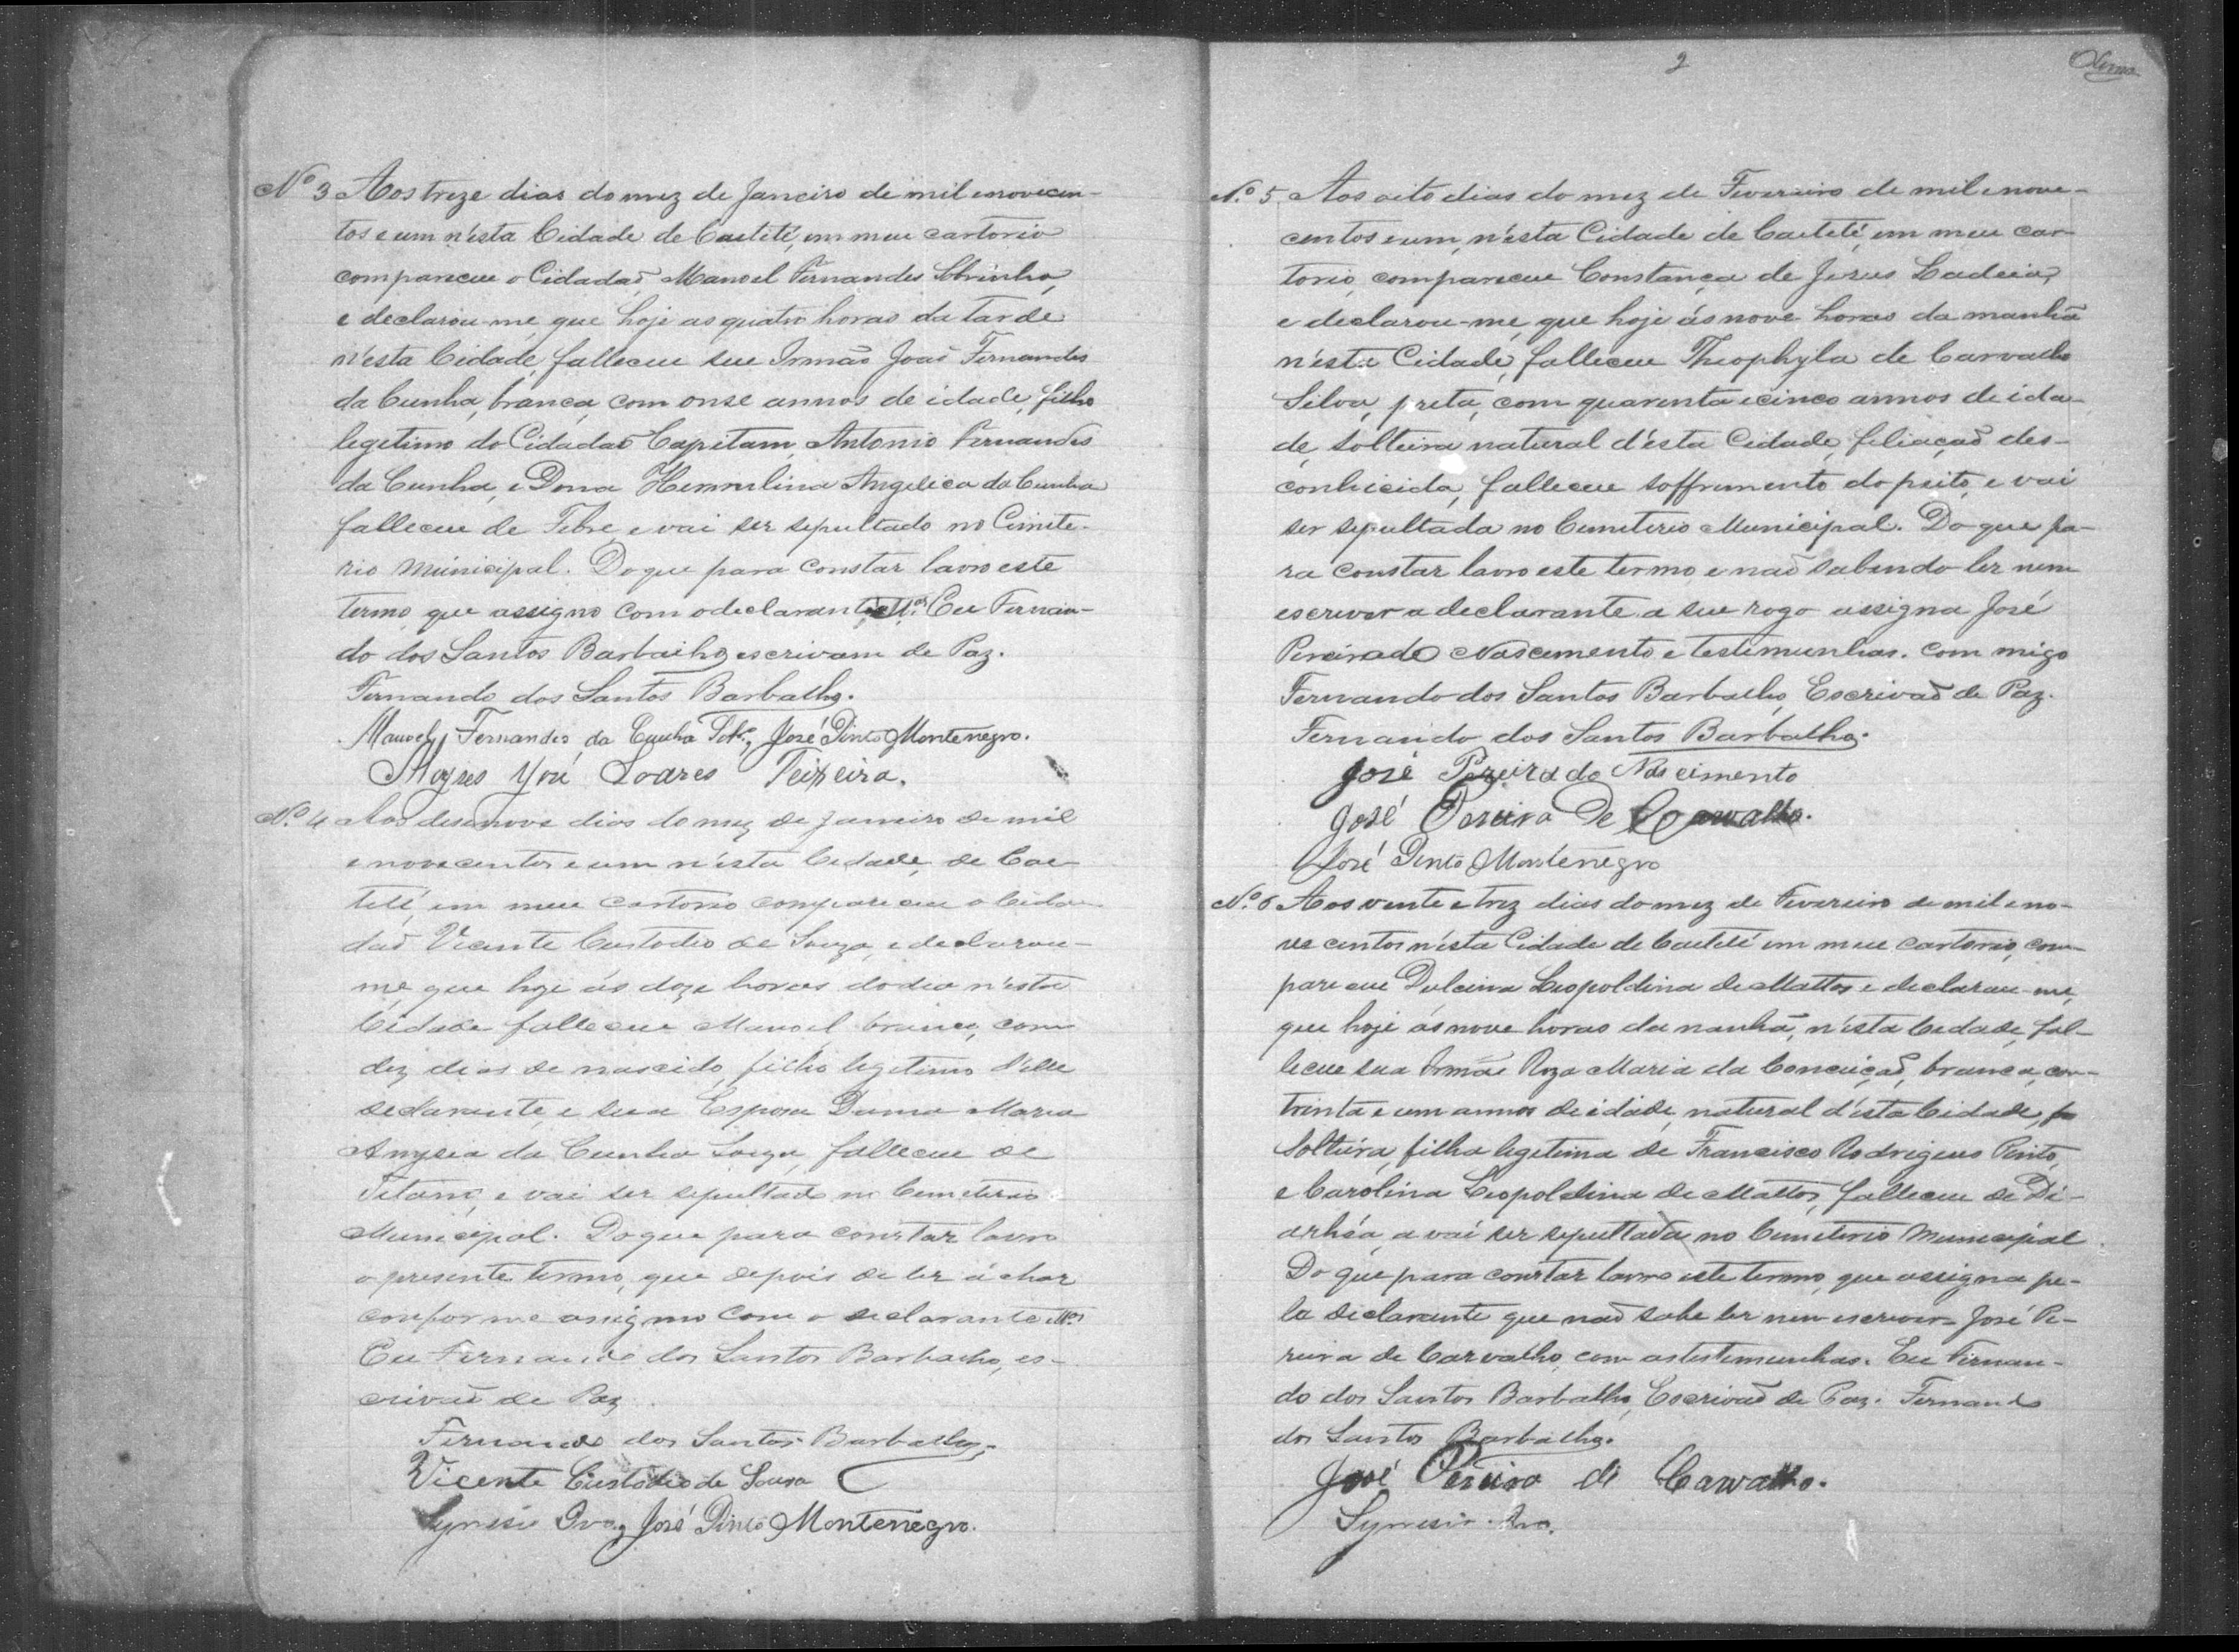 Nº 3 Aos treze dias do mez de Janeiro de mil enovecen-
tos e um n'esta Cidade de Caeteté, em meu cartorio
compareceu o Cidadaõ Manoel Fernandes Sobrinho,
e declarou-me que hoje as quatro horas da tarde
n'esta Cidade, falleceu seu Irmaõ Joaõ Fernandes
da Cunha, branca, com onse annos de idade, filho
legitimo do Cidadaõ Capitam, Antonio Fernandes
da Cunha, e Dona Hermulina Angelica da Cunha
falleceu de Febre, e vai ser sepultado no Cimite-
rio Municipal. Do que para constar lavro este
termo, que assigno com o declarante, e tt.as Eu Fernan-
do dos Santos Barbalho, escrivam de Paz.
Fernando dos Santos Barbalho.
Manoel Fernandes da Cunha Sobr.º José Pinto Montenegro.
Moyses José Soares Teixeira.
Nº 4 Aos desenove dias do mez de Janeiro de mil
e novecentos e um n'esta Cidade, de Cae-
teté, em meu cartorio compareceu o Cida-
daõ Vicente Custodio de Souza, e declarou-
me, que hoje ás doze horas do dia n'esta
Cidade falleceu Manoel, branco, com
dez dias de nascido, filho legitimo d'elle
declarante, e sua Esposa Dona Maria
Anysia da Cunha Souza, falleceu de
Tetano, e vai ser sepultado no Cemeterio
Municipal. Do que para constar lavro
o presente termo, que depois de ler á char
conforme assigno com o declarante e tt.as
Eu Fernando dos Santos Barbalho, es-
crivaõ de Paz.
Fernando dos Santos Barbalho.
Vicente Custodio de Sousa
Synesio José Pinto Montenegro.
2
Nº 5 Aos oito dias do mez de Fevereiro de mil e nove-
centos e um, n'esta Cidade de Caeteté, em meu car-
torio, compareceu Constança de Jesus Ladeia,
e declarou-me, que hoje ás nove horas da manhã
n'esta Cidade, falleceu Theophyla de Carvalho
Silva, preta, com quarenta e cinco annos de ida-
de, solteira natural d'esta Cidade, filiaçaõ des-
conhicida, falleceu soffrimento do peito, e vai
ser sepultada no Cemeterio Municipal. Do que pa-
ra constar lavro este termo e naõ sabendo ler nem
escrever a declarante a seu rogo assigna José
Pereira do Nascimento e testimunhas. com migo
Fernando dos Santos Barbalho, Escrivaõ de Paz.
Fernando dos Santos Barbalho.
José Pereira do Nascimento
José Pereira De Carvalho.
José Pinto Montenegro
Nº 6 Aos vente e trez dias do mez de Fevereiro de mil e no-
ve centos n'esta Cidade de Caeteté em meu cartorio, com-
pareceu Dulcina Leopoldina de Mattos e declarou-me,
que hoje ás nove horas da manhã, n'esta Cidade, fal-
leceu sua Irmãe Roza Maria da Conceiçaõ, branca, com
trinta e um annos de idade, natural d'esta Cidade,
solteira, filha legitima de Francisco Rodrigues Pinto,
e Carolina Leopoldina de Mattos, falleceu de Di-
arhéa, a vai ser sepultada no Cemeterio Municipal.
Do que para constar lavro este termo, que assigna pe-
la declarante que naõ sabe ler nem escrever José Pe-
reira de Carvalho, com as testimunhas. Eu Fernan-
do dos Santos Barbalho, Escrivaõ de Paz. Fernando
dos Santos Barbalho.
José Pereira de Carvalho.
Synesio